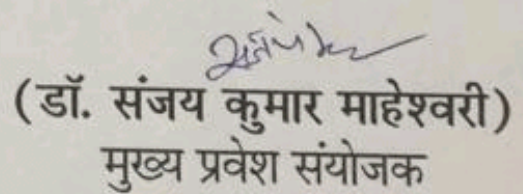 (डॉ. संजय कुमार माहेश्वरी)
मुख्य प्रवेश संयोजक